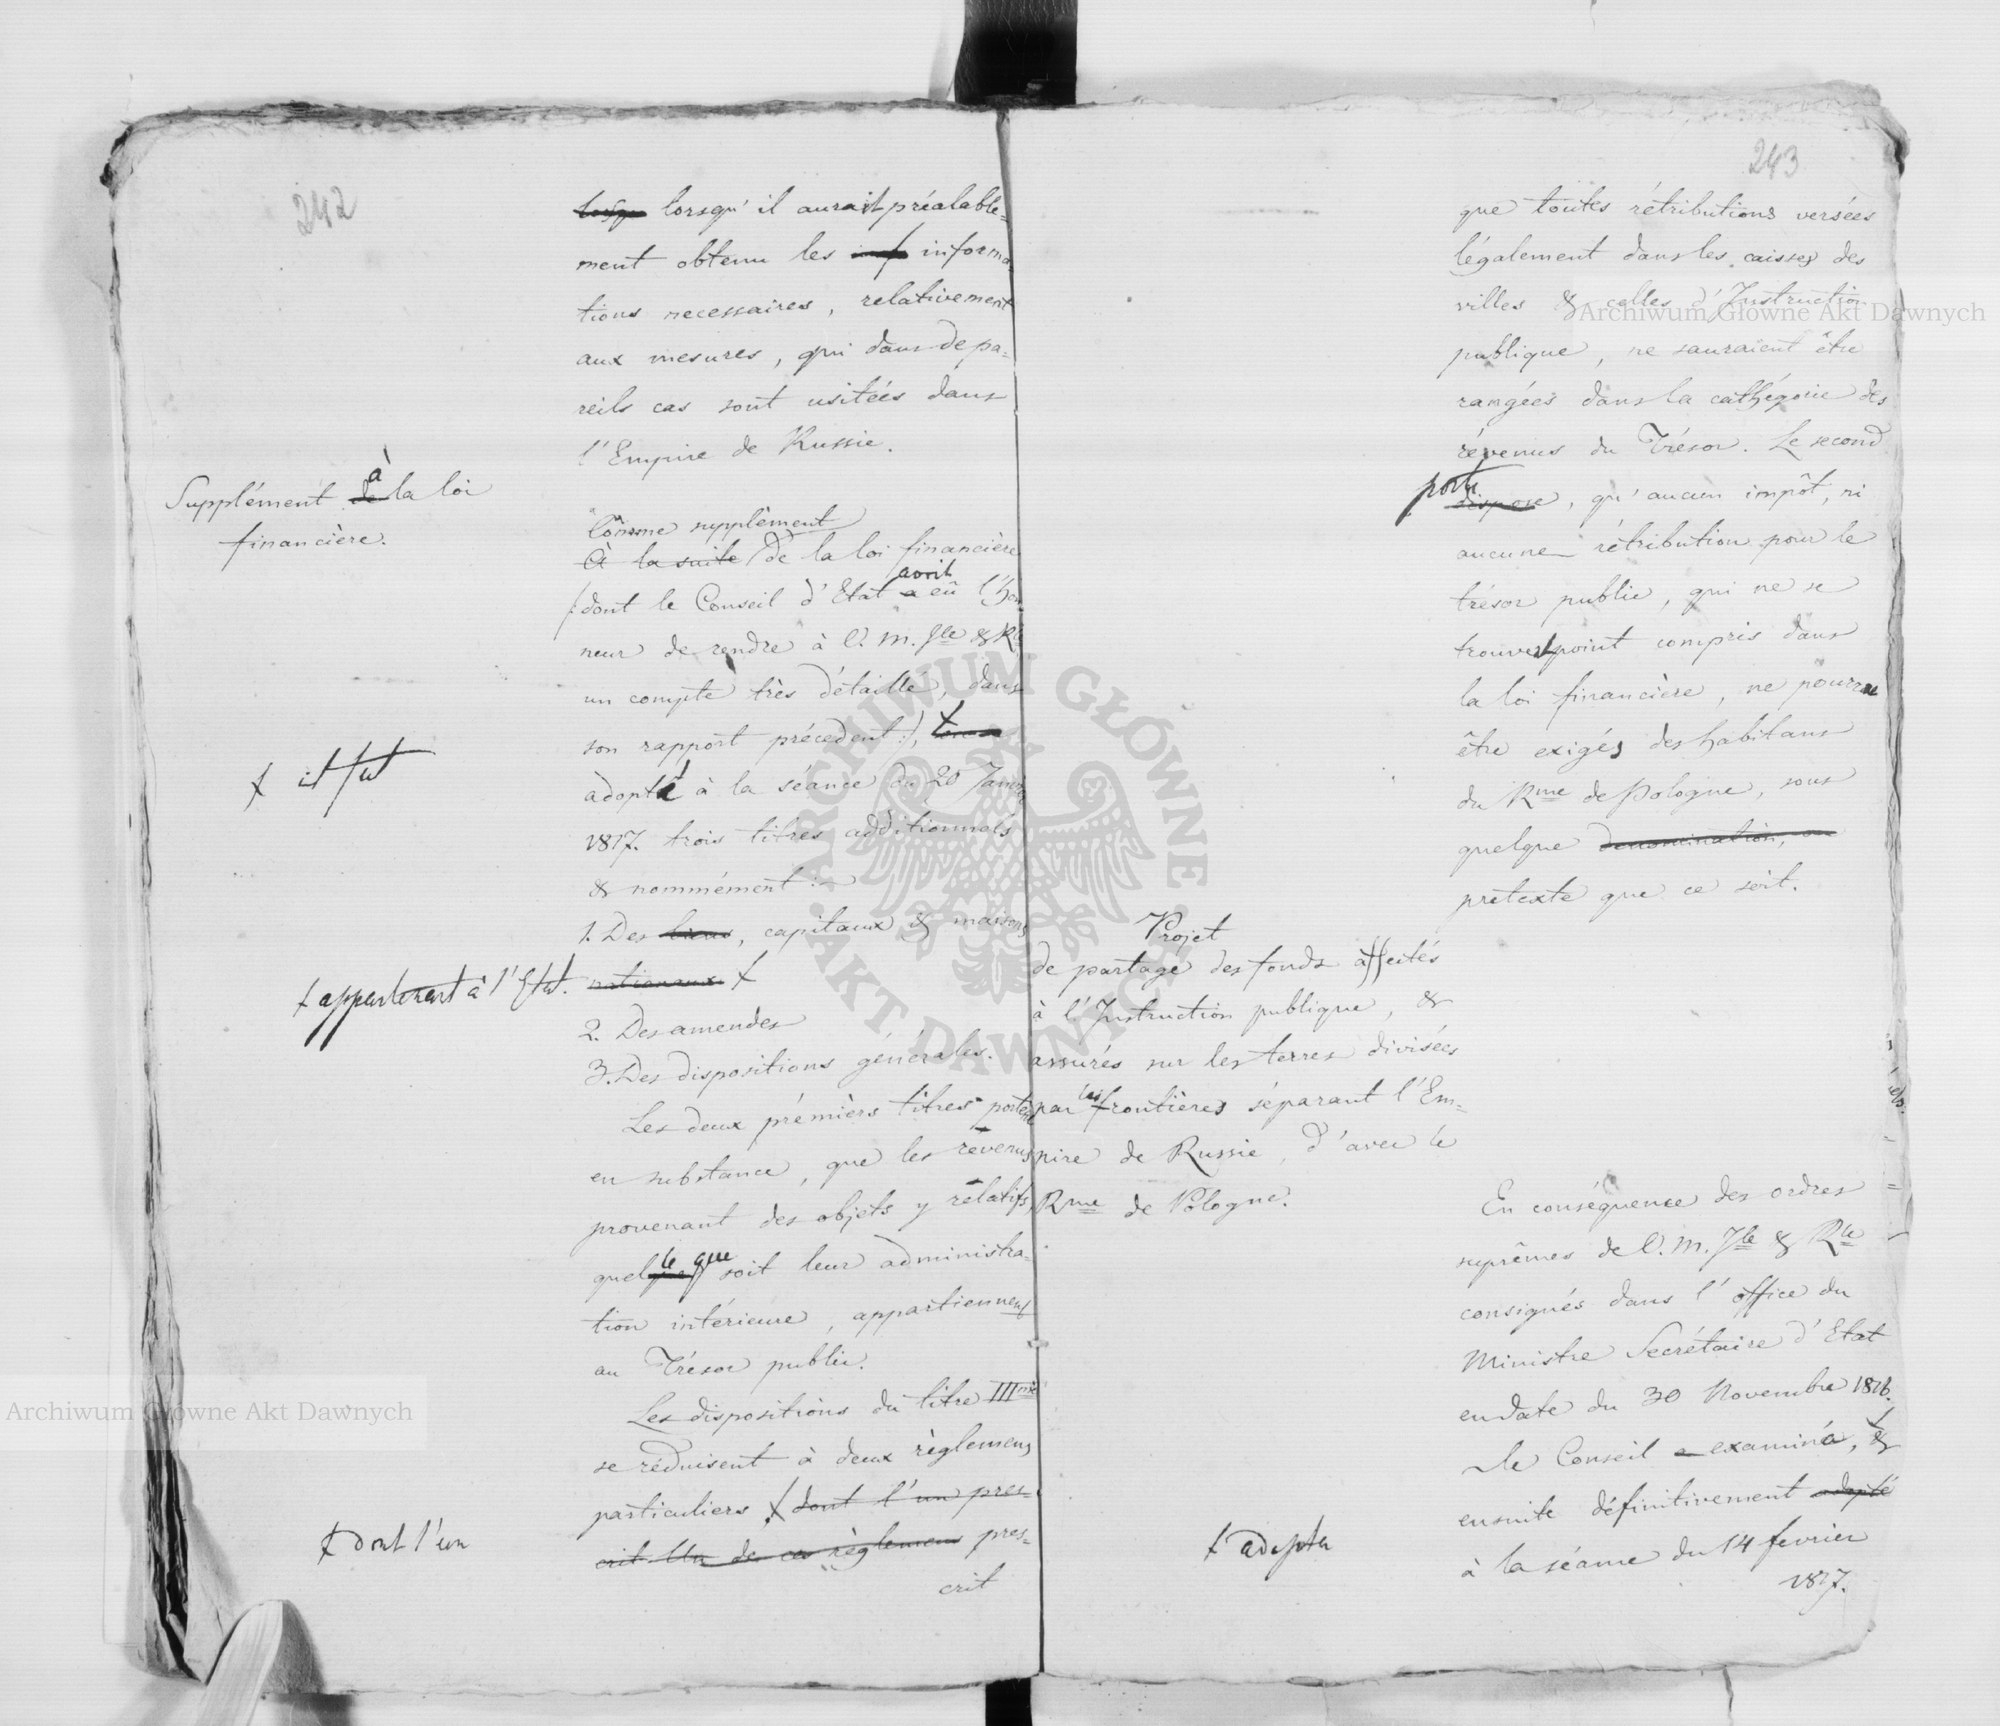 242
lorsqu' il aurait préalable-
ment obtenu les informa-
tions necessaires, relativement
aux mesures, qui dans de pa-
reils cas sont usitées dans
l'Empire de Russie.
Supplément de à la loi
financière.
Comme supplément
À la suite de la loi financière
/: dont le Conseil d'Etat a avait eû l'hon
neur de rendre à V. M. Jle & Rle
un compte très détaillé, dans
son rapport précedent :/, +
+ il fut
adopté à la séance du 20 Janvier
1817. trois titres additionnels
& nommément:
1. Des biens, capitaux & maisons
nationaux +
+ appartenant à l'Etat.
2. Des amendes
3. Des dispositions générales.
Les deux prémièrs titres portent
en substance, que les revenus
provenant des objets y relatifs,
quelle que soit leur administra-
tion intérieure, appartiennent
au Trésor public.
Les dispositions du titre IIIme
se réduisent à deux règlemens
particuliers, + dont l'un pres-
crit Un de ces règlemens pres-
+ dont l'un
crit
243
que toutes rétributions versées
légalement dans les caisses des
villes & celles d'Instruction
publique, ne sauraient être
rangées dans la cathégorie des
révenus du Trésor. Le second
porte
dispose, qu'aucun impôt, ni
aucune rétribution pour le
trésor public, qui ne se
trouve point compris dans
la loi financière, ne pourra
être exigés des habitans
du Rme de Pologne, sous
quelque denomination, ou
pretexte que ce soit.
Projet
de partage des fonds affectés
à l'Instruction publique, &
assurés sur les terres divisées
par les frontières séparant l'Em-
pire de Russie, d'avec le
Rme de Pologne.
En conséquence des ordres
suprêmes de V. M. Jle & Rle
consignés dans l'office du
Ministre Secrétaire d'Etat
en date du 30 Novembre 1816.
le Conseil a examiné, + &
ensuite définitivement adopté
+ adopta
à la séance du 14 fevrier
1817.
Archiwum Główne Akt Dawnych
Archiwum Główne Akt Dawnych
ARCHIWUM GŁÓWNE · AKT DAWNYCH ·